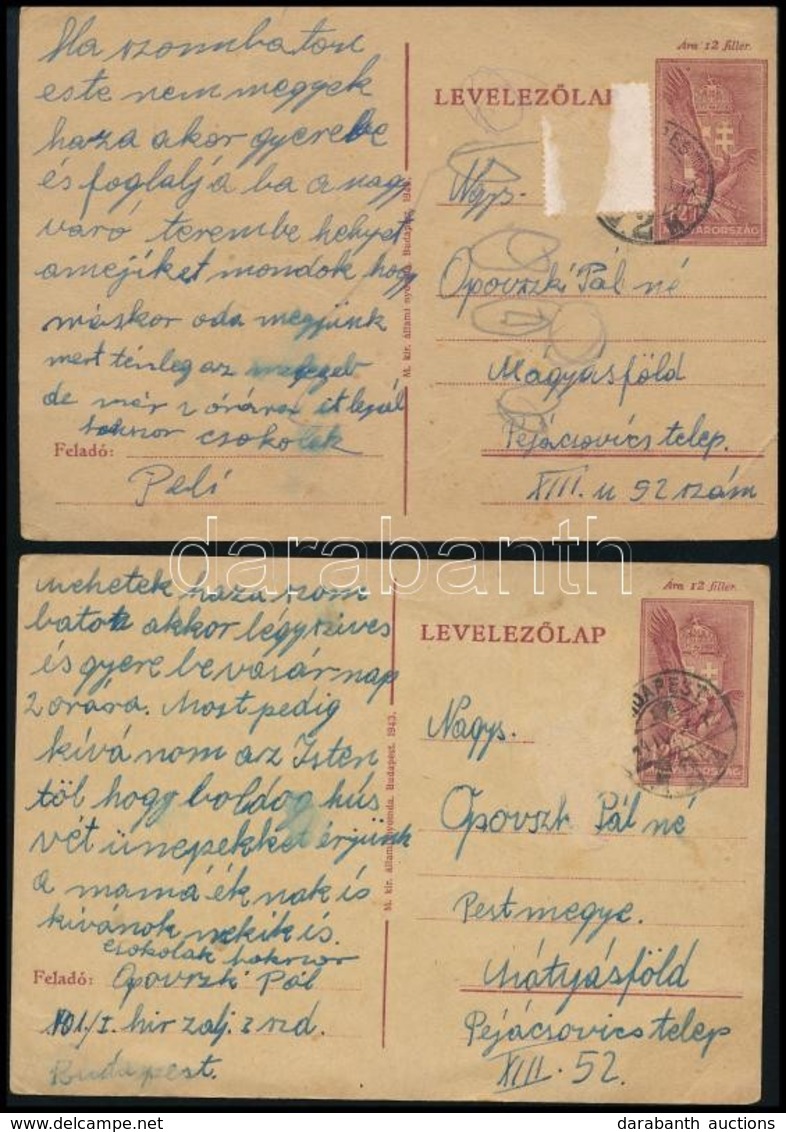 Ha szombaton
este nem megyek
haza akor gyere be
és foglalj a ba a nagy
varó terembe helyet
amejiket mondok hogy
máskor oda megjünk
mert ténleg az
de már 2 órára it
sokszor csokolek
Feladó:
Peli
M. kir. állami Budapest,
Ára 12 fillér.
LEVELEZŐLAP
MAGYARORSZÁG
Nags.
Opovszki Pál né
Mátyásföld
Pejácsovics telep.
XIII. u 52 szám
darabanth
mehetek haza szom
baton akkor légy szives
és gyere be vasár nap
2 orára. Most pedig
kívá nom az Isten
töl hogy boldog hús
vét ünepekket érjünk
a mamá ék nak is
kívánok nekik is.
csokolak sokszor
Feladó: Opovszki Pál
101/I. hir zalj. 2 szd.
Budapest.
M. kir. állami nyomda. Budapest. 1943.
Ára 12 fillér.
LEVELEZŐLAP
BUDAPEST
MAGYARORSZÁG
Nagys.
Opovszk Pál né
Pest megye.
Mátyásföld
Pejácsovics telep
XIII. 52.
darabanth auctions